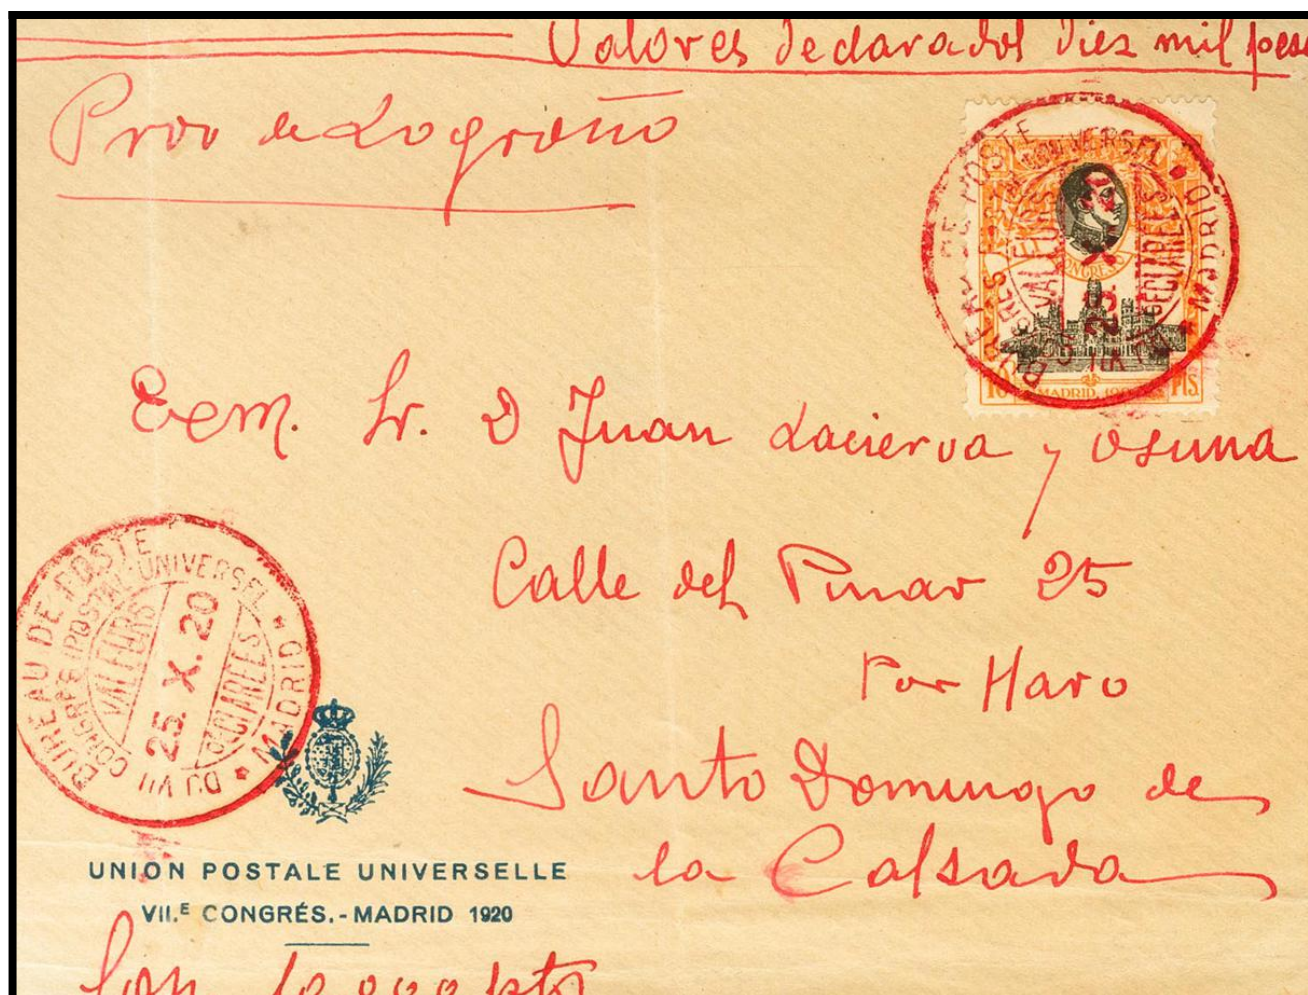 Valores declarados diez mil
Prov de Logroño
BUREAU DE POSTE
CONGRÈS POSTAL UNIVERSEL
VALEURS
DÉCLARÉES
MADRID
CONGRESO
MADRID
10 PTS.
Exm. Sr. D Juan Lacierva y Osuna
Calle del Pinar 25
Por Haro
Santo Domingo de
la Calsada
BUREAU DE POSTE
DU VII CONGRÈS POSTAL UNIVERSEL
VALEURS
25.X.20
DÉCLARÉES
MADRID
UNION POSTALE UNIVERSELLE
VII.E CONGRÉS.-MADRID 1920
Son 10.000 pts